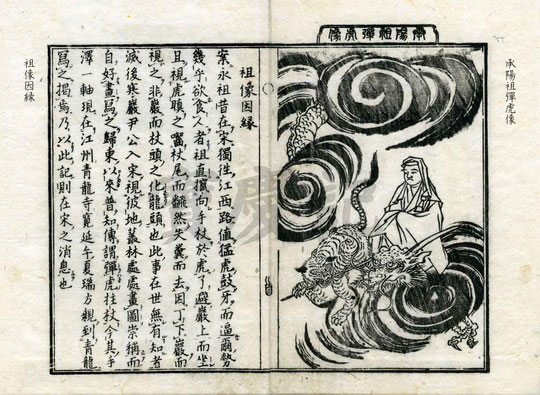 承陽祖彈虎像
承陽祖彈虎像
祖像因緣
案永祖昔在宋獨徃江西路値猛虎鼓牙而逼爾勢
幾乎欲食人者祖直攙向手杖於虎了避巖上而坐
且視虎瞋之齧杖尾而翻然失糞而去因丁下巖而
視之非巖而杖頭之化龍頭也此事在世無有知者
滅後寒巖尹公入宋視彼地叢林處處畫圖崇稱而
自好畫寫之歸東以來普知傳謂彈虎拄杖今其手
澤一軸現在江州青龍寺寬延午夏瑞方親到青龍
寫之揭焉乃以此記則在宋之消息也
祖像因縁